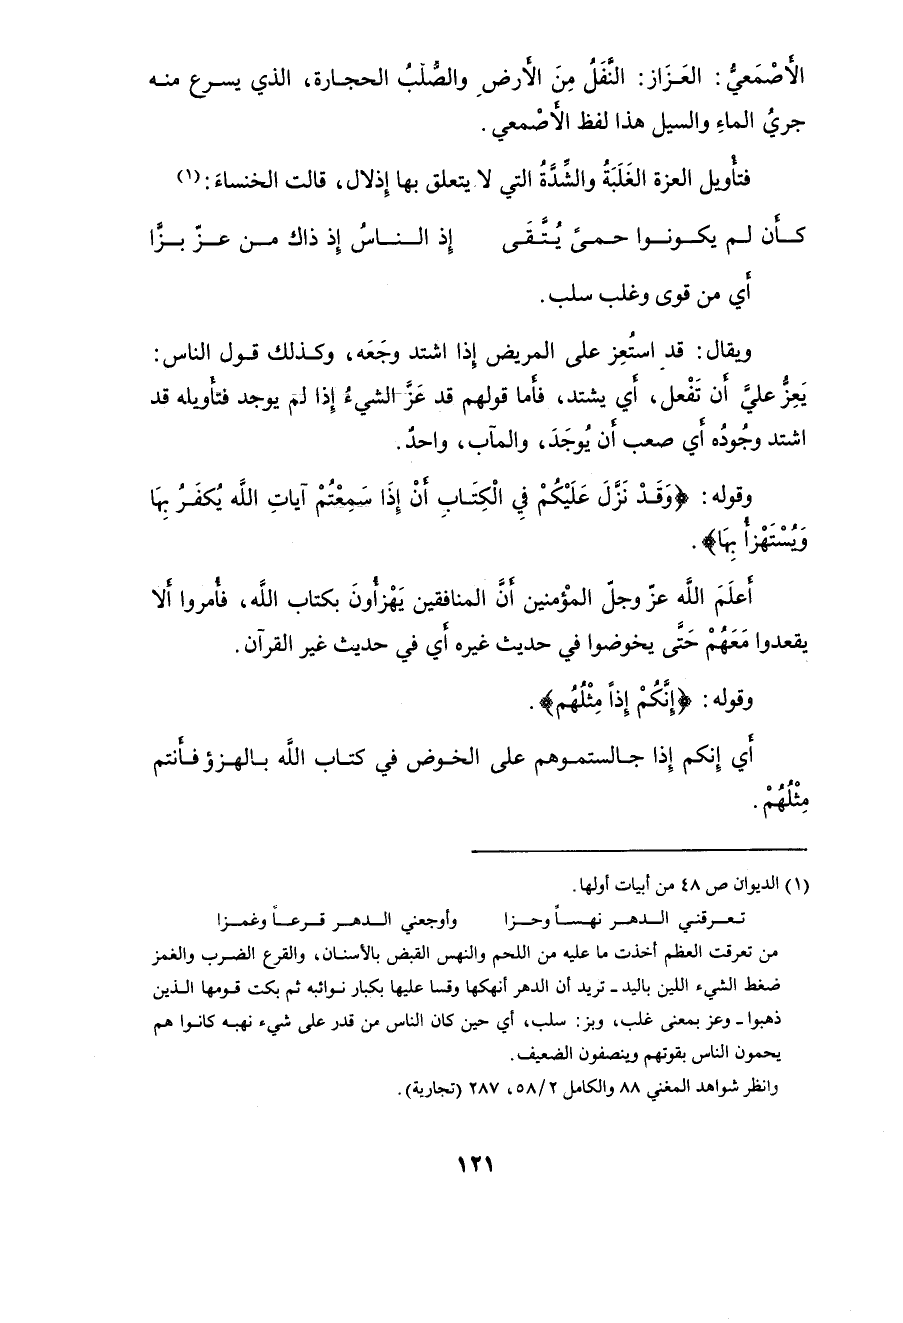 الأَصْمَعيُّ: العَزَاز: النَّفَلُ مِنَ الأَرضِ والصُّلْبُ الحجارة، الذي يسرع منه
جريُ الماءِ والسيل هذا لفظ الأَصْمعي.
فتأَويل العزة الغَلَبَةُ والشِّدَّةُ التي لا يتعلق بها إِذلال، قالت الخنساءَ:(١)
كأَن لم يكونوا حمىً يُتَّقَى إِذ الناسُ إِذ ذاك من عزّ بزَّا
أَي من قوى وغلب سلب.
ويقال: قد استُعِز على المريض إِذا اشتد وجَعَه، وكذلك قول الناس:
يَعِزُّ عليَّ أَن تَفْعل، أَي يشتد، فأَما قولهم قد عَزَّ الشيءُ إِذا لم يوجد فتأَويله قد
اشتد وجُودُه أَي صعب أَن يُوجَدَ، والمآب، واحدٌ.
وقوله: ﴿وَقَدْ نَزَّلَ عَلَيْكُمْ فِي الْكِتَابِ أَنْ إِذَا سَمِعْتُمْ آيَاتِ اللَّه يُكفَرُ بِهَا
وَيُسْتَهْزأُ بِهَا﴾.
أَعلَمَ اللَّه عزّ وجلّ المؤمنين أَنَّ المنافقين يَهْزأُونَ بكتاب اللَّه، فأُمروا أَلا
يقعدوا مَعَهُمْ حَتَّى يخوضوا في حديث غيره أَي في حديث غير القرآن.
وقوله: ﴿إِنَّكُمْ إِذاً مِثْلُهُم﴾.
أَي إِنكم إِذا جالستموهم على الخوض في كتاب اللَّه بالهزؤ فأَنتم
مِثْلُهُمْ.
(١) الديوان ص ٤٨ من أبيات أولها.
تعرقني الدهر نهساً وحزا وأوجعني الدهر قرعاً وغمزا
من تعرقت العظم أخذت ما عليه من اللحم والنهس القبض بالأسنان، والقرع الضرب والغمز
ضغط الشيء اللين باليد - تريد أن الدهر أنهكها وقسا عليها بكبار نوائبه ثم بكت قومها الذين
ذهبوا - وعز بمعنى غلب، وبز: سلب، أي حين كان الناس من قدر على شيء نهبه كانوا هم
يحمون الناس بقوتهم وينصفون الضعيف.
وانظر شواهد المغني ٨٨ والكامل ٥٨/٢، ٢٨٧ (تجارية).
١٢١